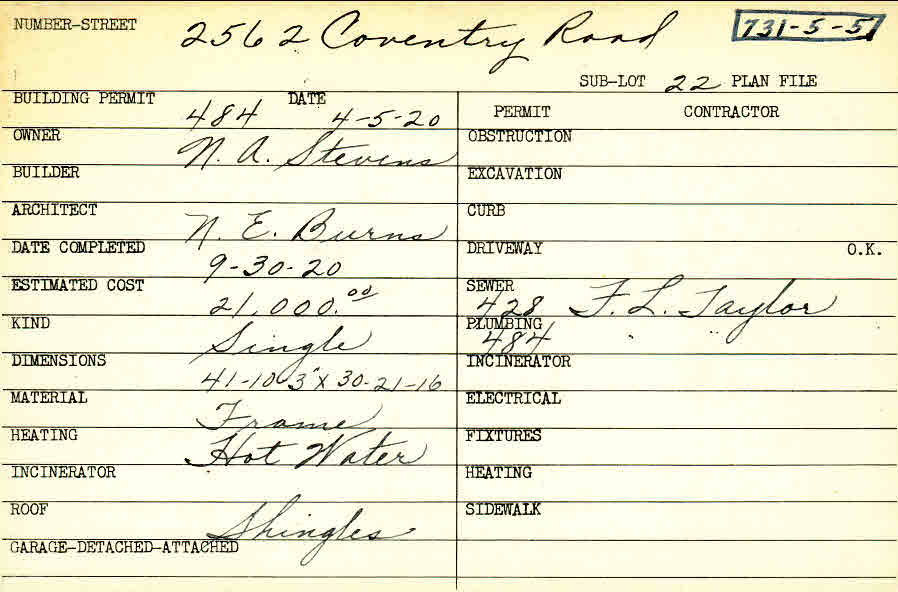 NUMBER-STREET 2562 Coventry Road 731-5-5
SUB-LOT 22 PLAN FILE
BUILDING PERMIT 484 DATE 4-5-20
PERMIT CONTRACTOR
OWNER N. A. Stevens
OBSTRUCTION
BUILDER
EXCAVATION
ARCHITECT N. E. Burns
CURB
DATE COMPLETED 9-30-20
DRIVEWAY O.K.
ESTIMATED COST 21,000.00
SEWER 428 F. L. Taylor
KIND Single
PLUMBING 484 " "
DIMENSIONS 41-10-3" X 30-21-16
INCINERATOR
MATERIAL Frame
ELECTRICAL
HEATING Hot Water
FIXTURES
INCINERATOR
HEATING
ROOF Shingles
SIDEWALK
GARAGE-DETACHED-ATTACHED